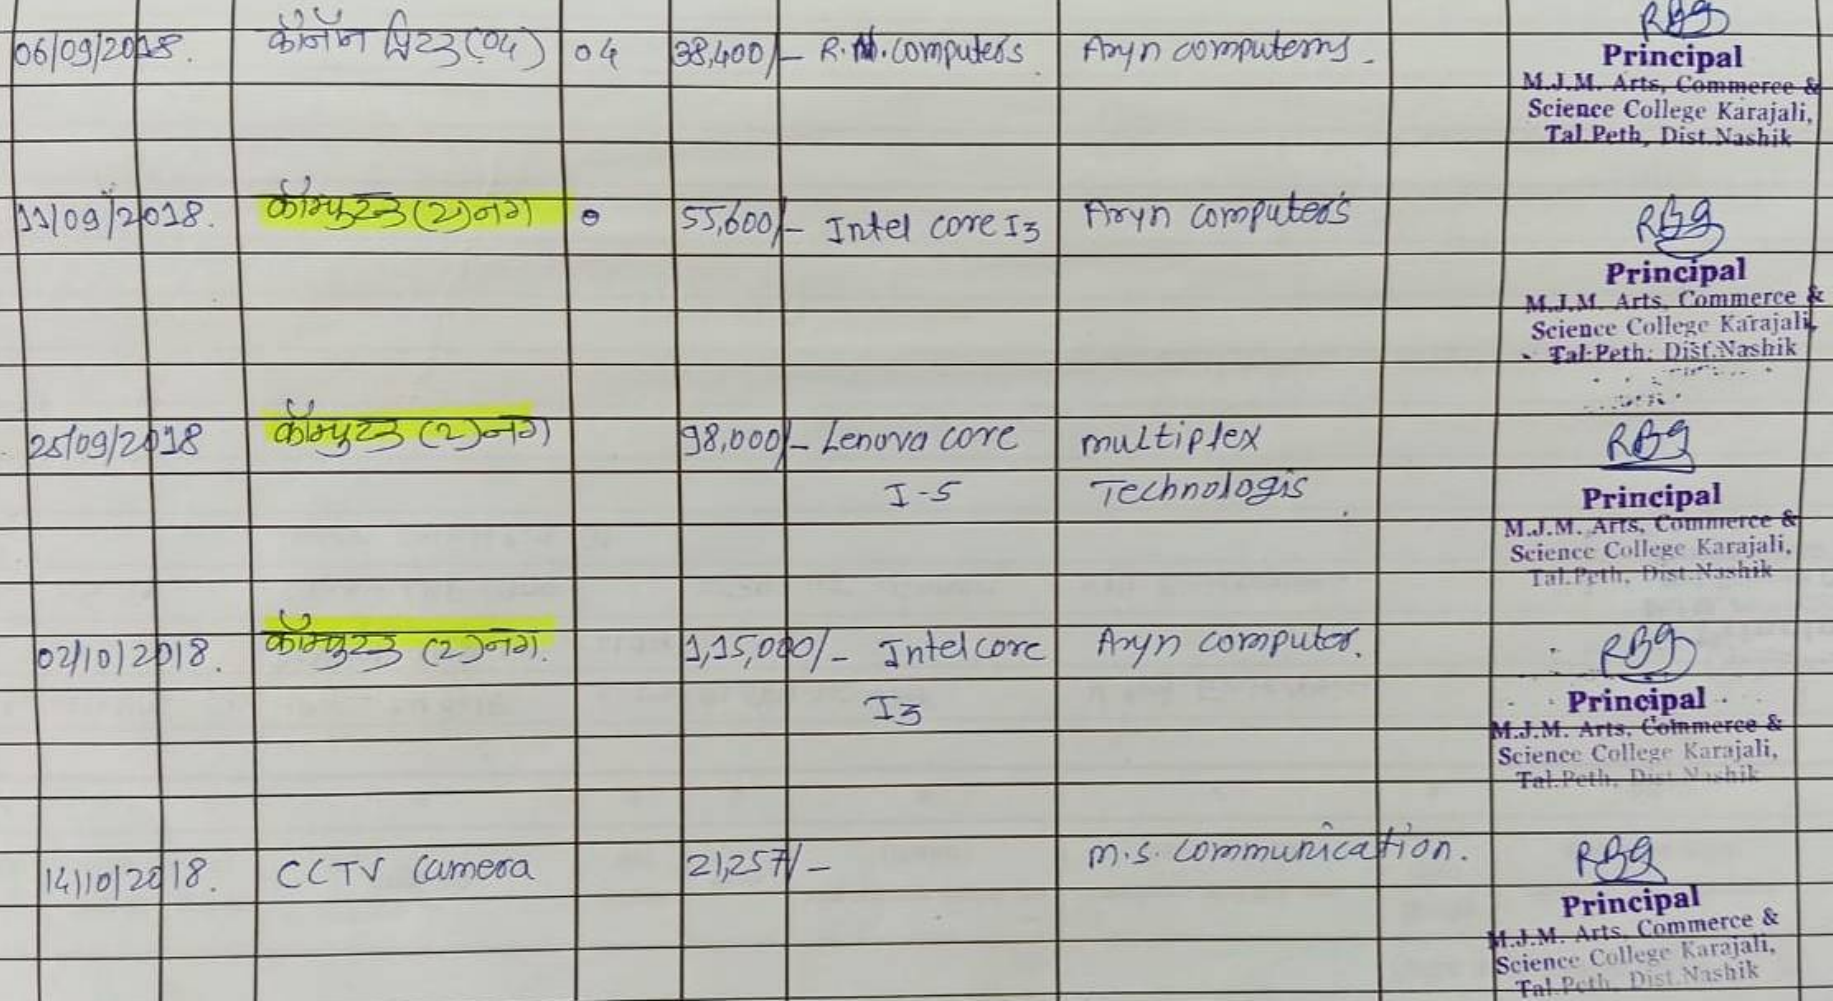 06/09/2018. कॅनॅन प्रिंटर (04) 04 38,400/- R.M. Computers. Aryn computerrs.
Principal
M.J.M. Arts, Commerce &
Science College Karajali,
Tal.Peth, Dist.Nashik
11/09/2018. कॉम्पुटर (2) नग 0 55,600/- Intel core I3 Aryn computers
Principal
M.J.M. Arts, Commerce &
Science College Karajali,
Tal.Peth. Dist.Nashik
25/09/2018 कॉम्पुटर (2) नग 98,000/- Lenova core multiplex
I-5 Technologis
Principal
M.J.M. Arts, Commerce &
Science College Karajali,
Tal.Peth, Dist.Nashik
02/10/2018. कॉम्पुटर (2) नग. 1,15,000/- Intel core Aryn computer.
I3
Principal
M.J.M. Arts, Commerce &
Science College Karajali,
Tal.Peth, Dist.Nashik
14/10/2018. CCTV Camera 21,257/- M.S. Communication.
Principal
M.J.M. Arts, Commerce &
Science College Karajali,
Tal.Peth, Dist.Nashik